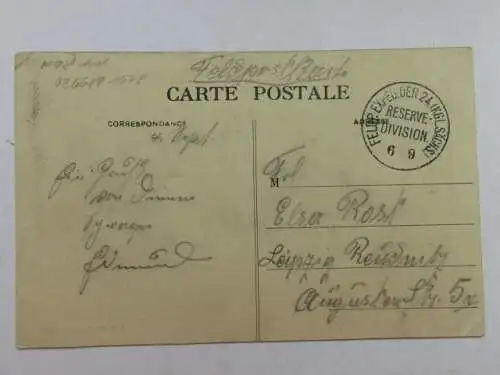 Feldpostkarte
CARTE POSTALE
CORRESPONDANCE
ADRESSE
FELDP. EXPED. DER 24. (KGL. SÄCHS.)
RESERVE-
DIVISION
6 9
4. Sept.
Ein Gruß
von Deinem
Edmund
M
Frl
Elsa Rost
Leipzig Reudnitz
Augusten Str. 5